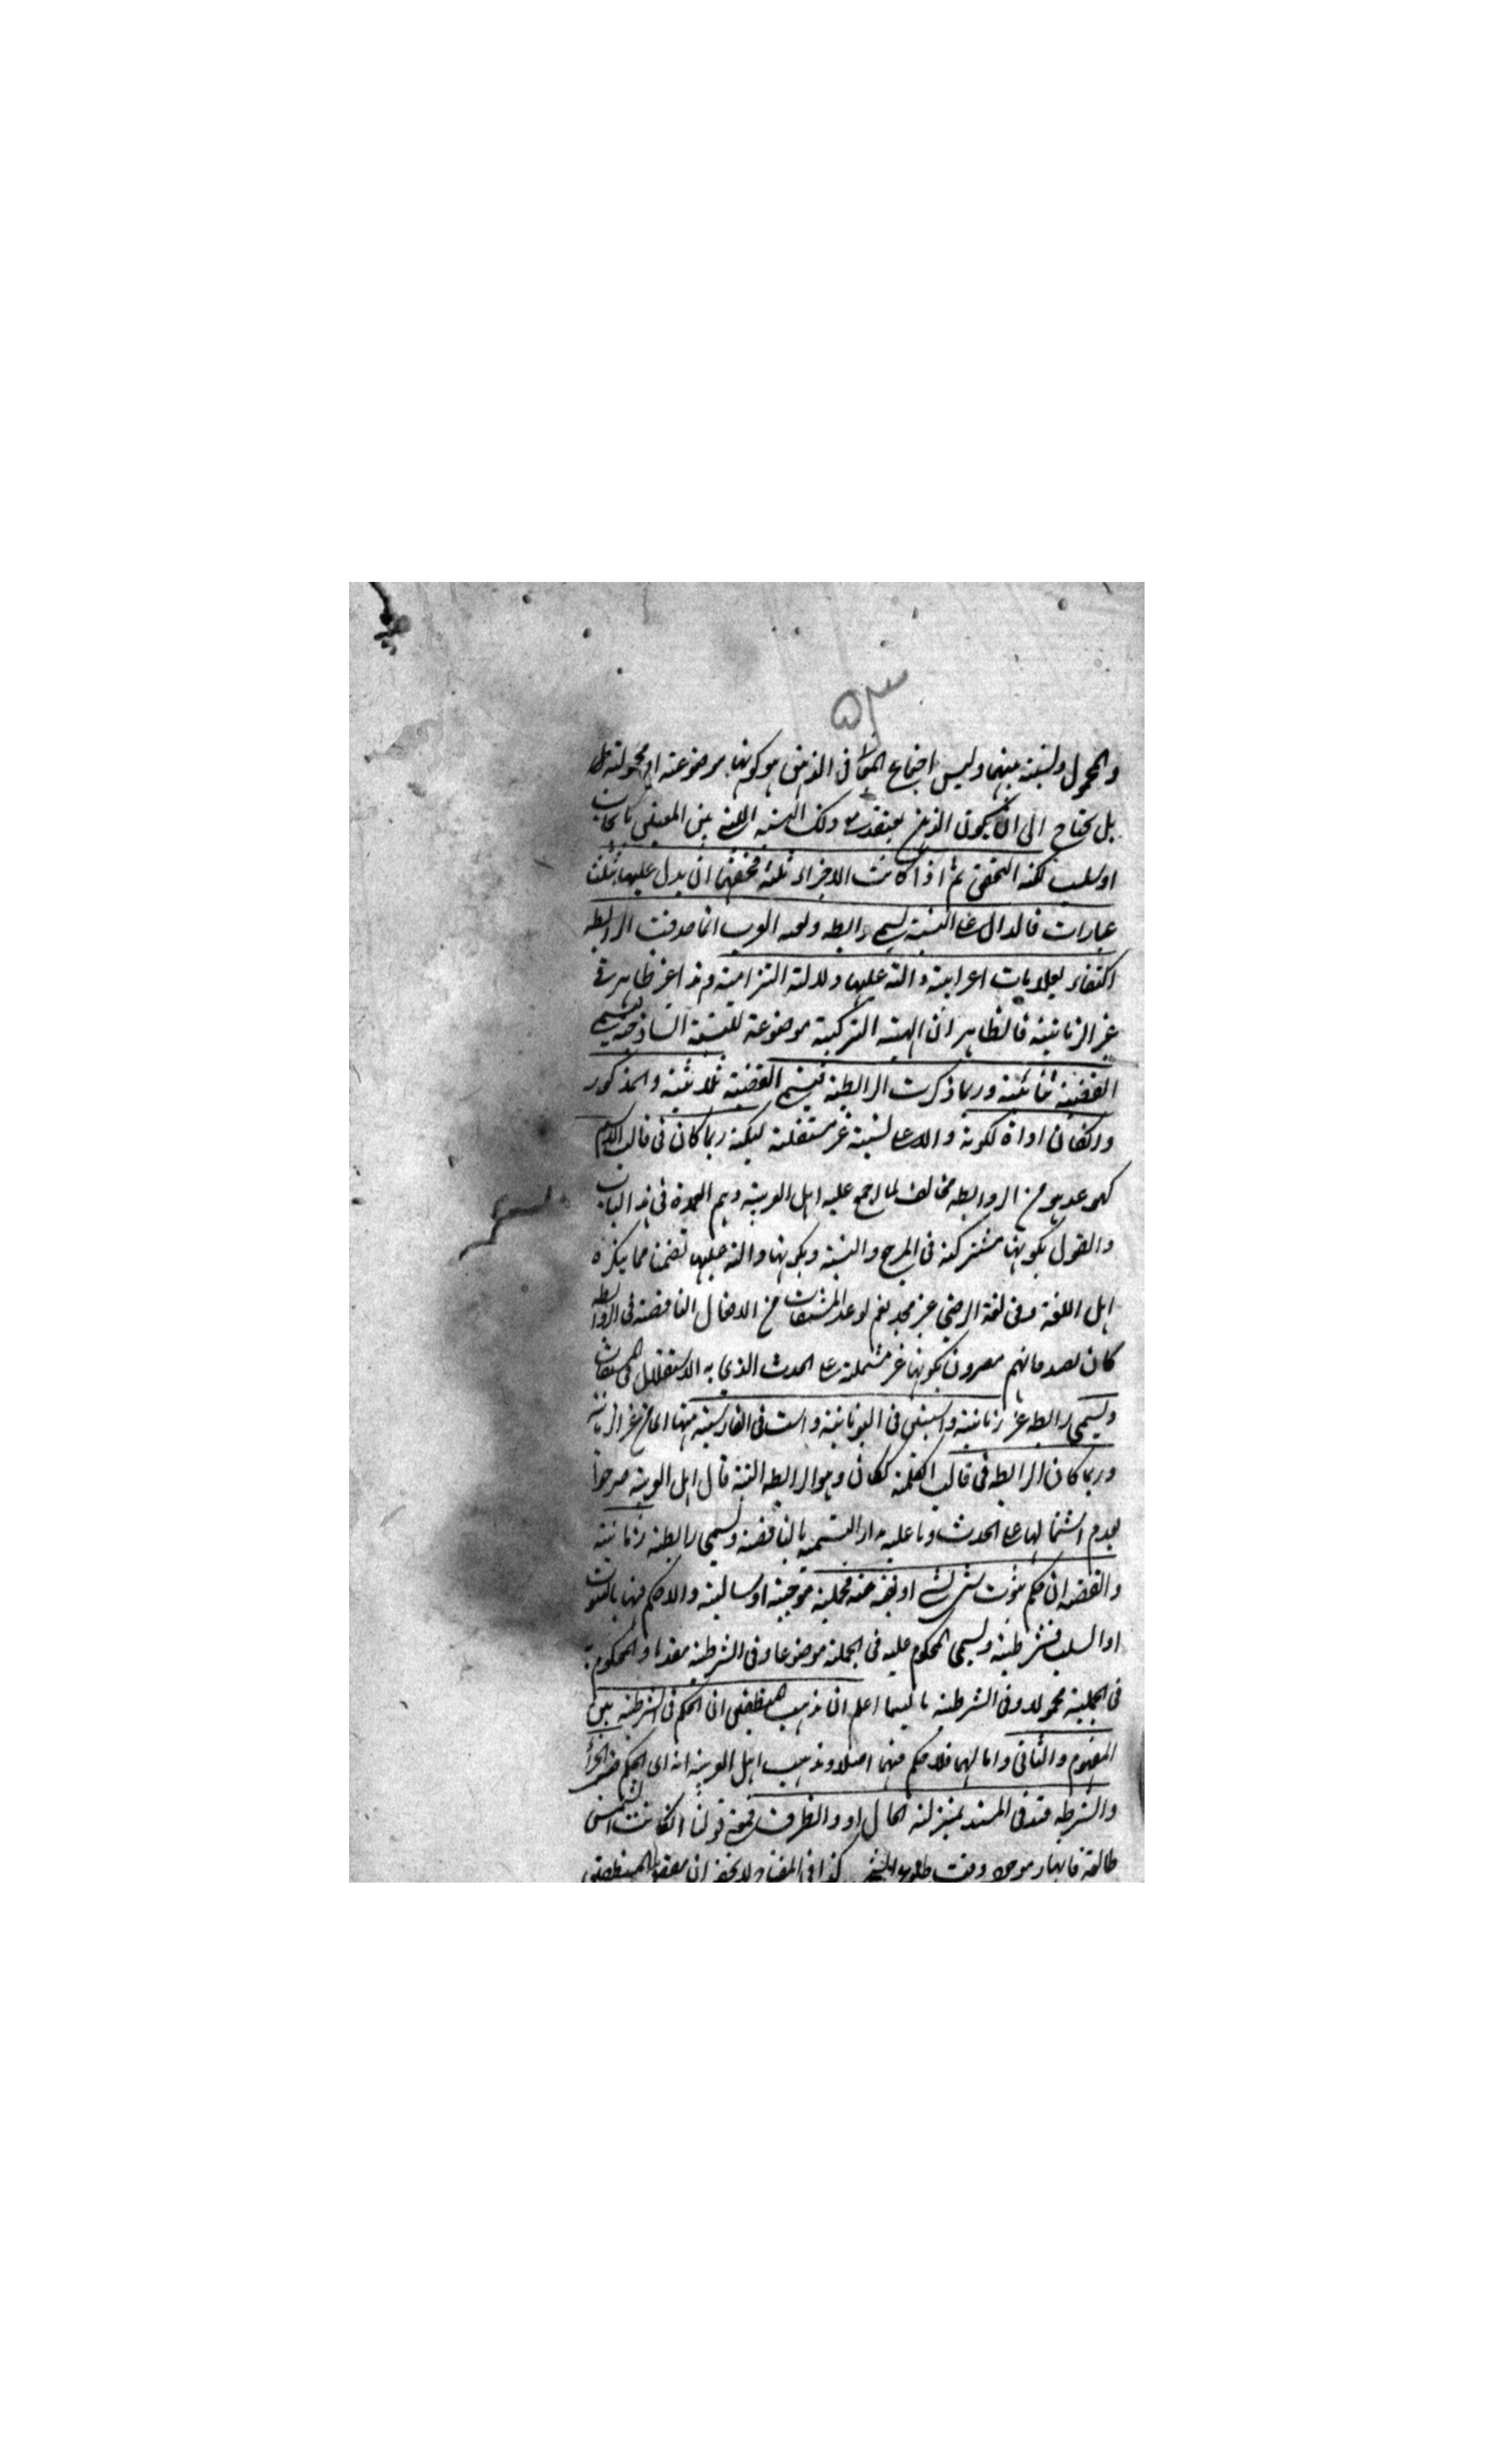 ۵۳
والمحمول ونسبته بينهما وليس اجتماع المعانى فى الذهن هو كونها موضوعة او محمولة
بل يحتاج الى ان يكون الذهن يعتقد مع ذلك النسبة التى بين المعنيين بايجاب
او سلب لكنه التحقيق ثم اذا كانت الاجزاء ثلثة فحقها ان يدل عليها بثلث
عبارات فالدال على النسبة يسمى رابطة ولغة العرب انما حذفت الرابطة
اكتفاء بعلامات اعرابية دالة عليها دلالة التزامية وهذا غير ظاهر فى
غير الزمانية فالظاهر ان الهيئة التركيبية موضوعة للنسبة الساذجية فيسمى
القضية ثنائية وربما ذكرت الرابطة فيسمى القضية ثلاثية والمذكور
وان كان اداة لكونه دالا على نسبة غير مستقلة لكنه ربما كان فى قالب الاسم
كهو عد هو من الروابط مخالف لما اجمع عليه اهل العربية وهم العمدة فى هذا الباب
والقول بكونها مشتركة فى المرجع والنسبة وبكونها دالة عليها تضمنا مما ينكره
اهل اللغة وفى لغة الرضى عن مجد نعم لو عد المشتقات من الافعال الناقصة فى الروابط
كان لصد فانهم مصرون بكونها غير مشتملة على الحدث الذى به الاستقلال فى المشتقات
ويسمى رابطة غير زمانية واستين فى اليونانية واست فى الفارسية منها اى من غير الزمانية
وربما كان الرابطة فى قالب الكلمة ككان وهو الرابطة البتة قال اهل العربية صرحوا
بعدم اشتمالها على الحدث وما عليه مدار التسمية بالناقصة ويسمى رابطة زمانية
والقضية ان حكم بثبوت شئ لشئ او نفيه عنه فحملية موجبة او سالبة والا حكم فيها بالثبوت
او السلب فشرطية ويسمى المحكوم عليه فى الحملية موضوعا وفى الشرطية مقدما والمحكوم به
فى الحملية محمولا وفى الشرطية تاليا اعلم ان مذهب المنطقيين ان الحكم فى الشرطية بين
المقدم والتالى واما لهما فلا حكم فيهما اصلا ومذهب اهل العربية انه اى الحكم فى الجزاء
والشرط قيد فى المسند بمنزلة الحال او الظرف فمعنى قولنا ان كانت الشمس
طالعة فالنهار موجود وقت طلوع الشمس كذا فى المفتاح لا يخفى ان المنطقيين